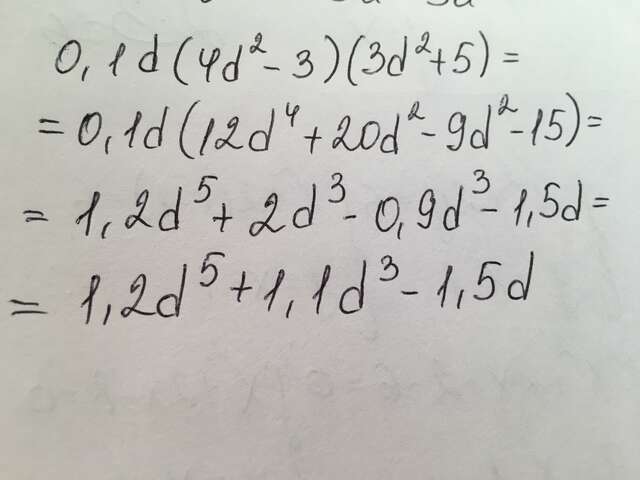 0,1d(4d²-3)(3d²+5)=
=0,1d(12d⁴+20d²-9d²-15)=
=1,2d⁵+2d³-0,9d³-1,5d=
=1,2d⁵+1,1d³-1,5d